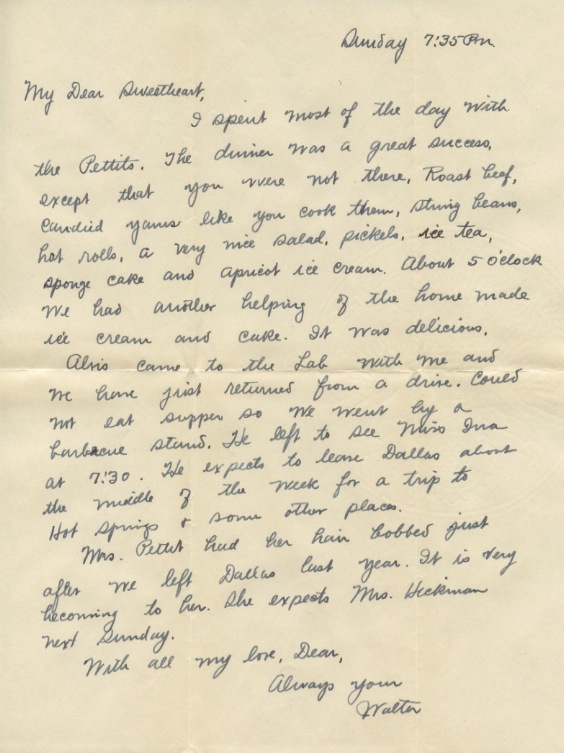 Sunday 7:35 Pm
My Dear Sweetheart,
I spent most of the day with
the Pettits. The dinner was a great success,
except that you were not there, Roast beef,
candied yams like you cook them, string beans,
hot rolls, a very nice salad, pickels, ice tea,
sponge cake and apricot ice cream. About 5 o'clock
we had another helping of the home made
ice cream and cake. It was delicious.
Alvis came to the Lab with me and
we have just returned from a drive. Could
not eat supper so we went by a
barbacue stand. He left to see Miss Ina
at 7:30. He expects to leave Dallas about
the middle of the week for a trip to
Hot Springs & some other places.
Mrs. Pettit had her hair bobbed just
after we left Dallas last year. It is very
becoming to her. She expects Mrs. Hickman
next Sunday.
With all my love, Dear,
Always your
Walter